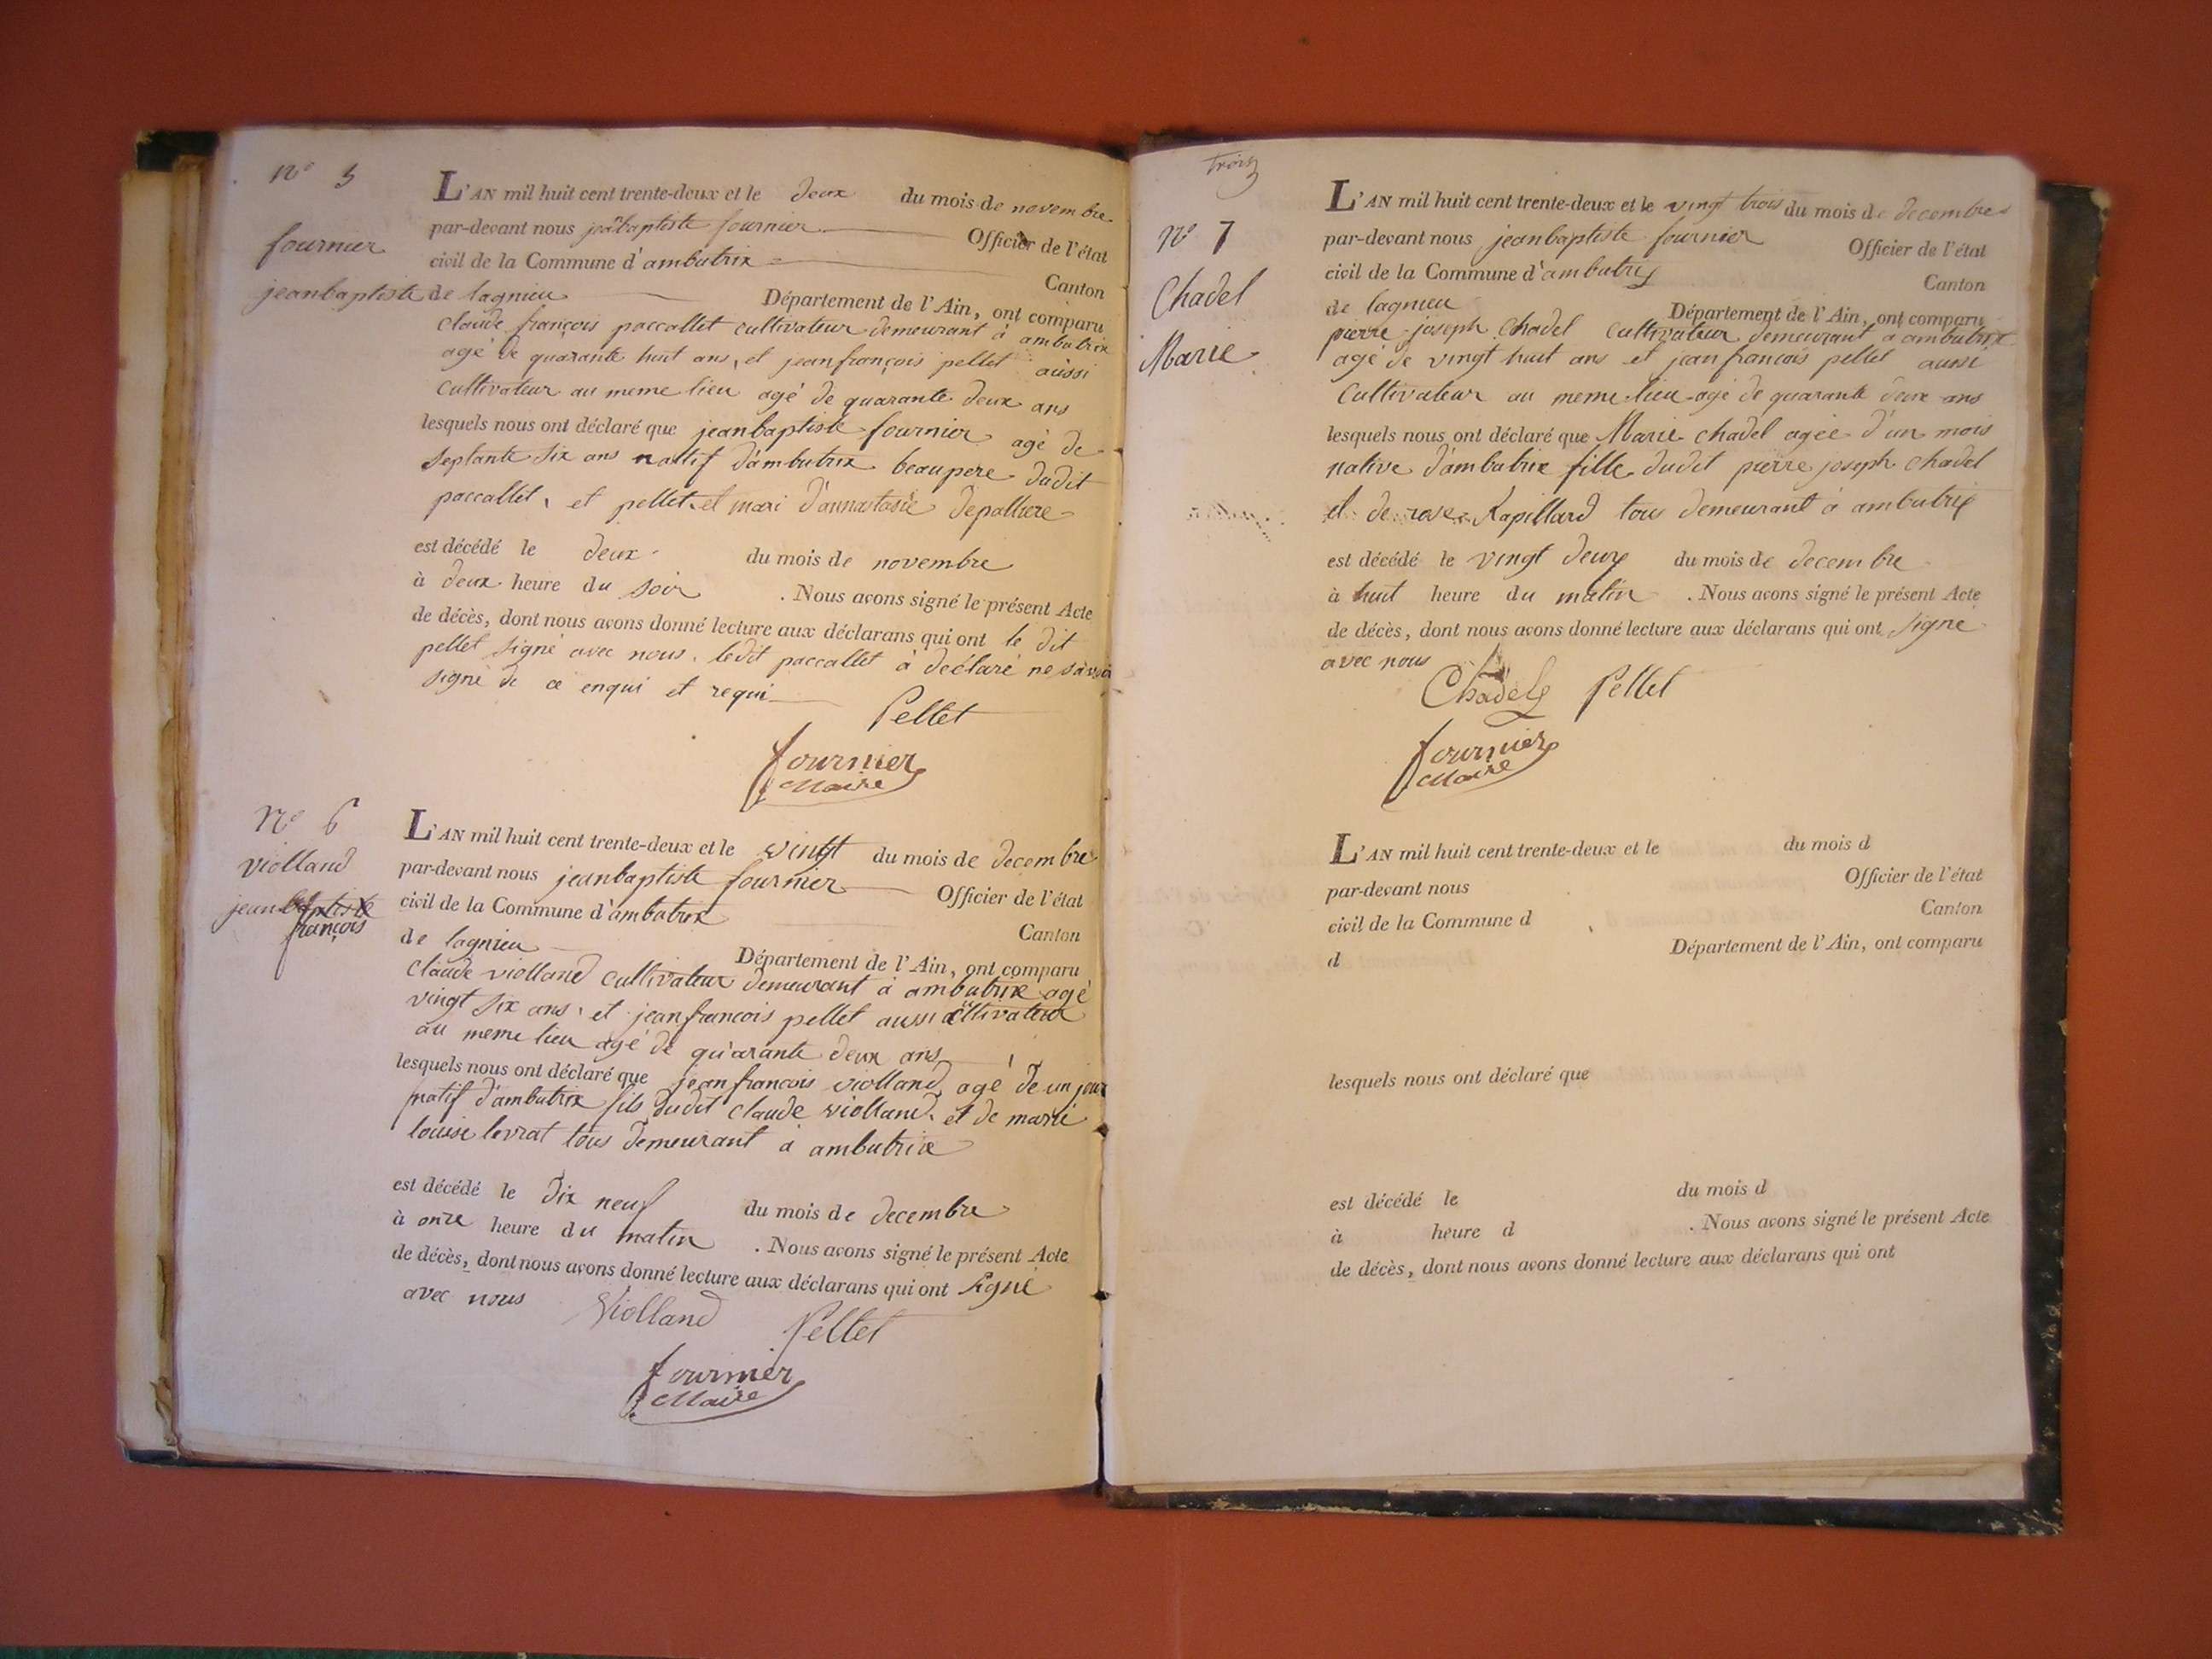 N° 5
fournier
jeanbaptiste
L'AN mil huit cent trente-deux et le deux du mois de novembre
par-devant nous jeanbaptiste fournier Officier de l'état
civil de la Commune d'ambutrix Canton
de lagnieu Département de l'Ain, ont comparu
Claude françois paccallet cultivateur demeurant à ambutrix
agé de quarante huit ans, et jeanfrançois pellet aussi
cultivateur au meme lieu agé de quarante deux ans
lesquels nous ont déclaré que jeanbaptiste fournier agé de
septante six ans natif d'ambutrix beaupere dudit
paccallet, et pellet et mari d'annastasie depalliere
est décédé le deux du mois de novembre
à deux heure du soir . Nous avons signé le présent Acte
de décès, dont nous avons donné lecture aux déclarans qui ont le dit
pellet signé avec nous. ledit paccallet à déclaré ne savoir
signé de ce enqui et requi
Pellet
fournier
Maire
N° 6
violland
jeanbaptiste
françois
L'AN mil huit cent trente-deux et le vingt du mois de decembre
par-devant nous jeanbaptiste fournier Officier de l'état
civil de la Commune d'ambutrix Canton
de lagnieu Département de l'Ain, ont comparu
Claude violland cultivateur demeurant à ambutrix agé
vingt six ans, et jeanfrancois pellet aussi cultivateur
au meme lieu agé de quarante deux ans
lesquels nous ont déclaré que jean francois violland agé de un jour
natif d'ambutrix fils dudit claude violland. et de marie
louise levrat tous demeurant à ambutrix
est décédé le dix neuf du mois de decembre
à onze heure du matin . Nous avons signé le présent Acte
de décès, dont nous avons donné lecture aux déclarans qui ont signé
avec nous Violland Pellet
fournier
Maire
trois
N° 7
Chadel
Marie
L'AN mil huit cent trente-deux et le vingt trois du mois de decembre
par-devant nous jeanbaptiste fournier Officier de l'état
civil de la Commune d'ambutrix Canton
de lagnieu Département de l'Ain, ont comparu
pierre joseph chadel cultivateur demeurant a ambutrix
agé de vingt huit ans et jean francois pellet aussi
cultivateur au meme lieu agé de quarante deux ans
lesquels nous ont déclaré que Marie chadel agée d'un mois
native d'ambutrix fille dudit pierre joseph chadel
et de rose Rapillard tous demeurant à ambutrix
est décédé le vingt deux du mois de decembre
à huit heure du matin . Nous avons signé le présent Acte
de décès, dont nous avons donné lecture aux déclarans qui ont signé
avec nous
Chadel Pellet
fournier
Maire
L'AN mil huit cent trente-deux et le du mois d
par-devant nous Officier de l'état
civil de la Commune d Canton
d Département de l'Ain, ont comparu
lesquels nous ont déclaré que
est décédé le du mois d
à heure d . Nous avons signé le présent Acte
de décès, dont nous avons donné lecture aux déclarans qui ont